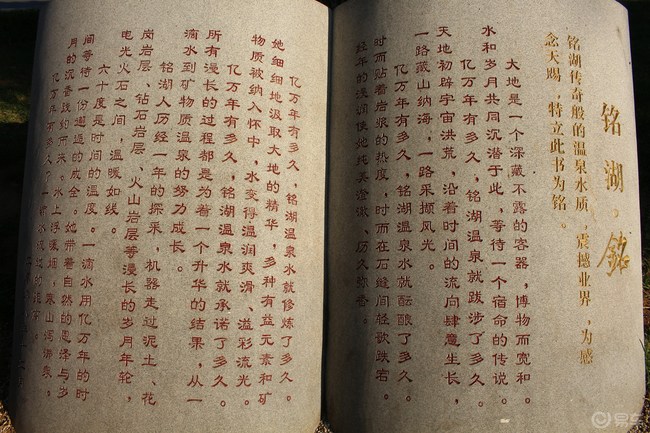 铭湖·铭
铭湖传奇般的温泉水质，震撼业界，为感
念天赐，特立此书为铭。
大地是一个深藏不露的容器，博物而宽和。
水和岁月共同沉潜于此，等待一个宿命的传说。
亿万年有多久，铭湖温泉就跋涉了多久。
天地初辟宇宙洪荒，沿着时间的流向肆意生长，
一路藏山纳海，一路采撷风光。
亿万年有多久，铭湖温泉水就酝酿了多久。
时而贴着岩浆的热度，时而在石缝间轻歌跌宕。
亿万年有多久，铭湖温泉水就修炼了多久。
她细细地汲取大地的精华，多种有益元素和矿
物质被纳入怀中，水变得温润爽滑、溢彩流光。
亿万年有多久，铭湖温泉水就承诺了多久。
所有漫长的过程都是为着一个升华的结果，从一
滴水到矿物质温泉的努力成长。
铭湖人历经一年的探采，机器走过泥土、花
岗岩层、钻石岩层、火山岩层等漫长的岁月年轮，
电光火石之间，温暖如线。
六十度是时间的温度。一滴水用亿万年的时
间等待一份邂逅的成全。她带着自然的恩泽与岁
月的沉香
亿万年有多久？一滴水
易车